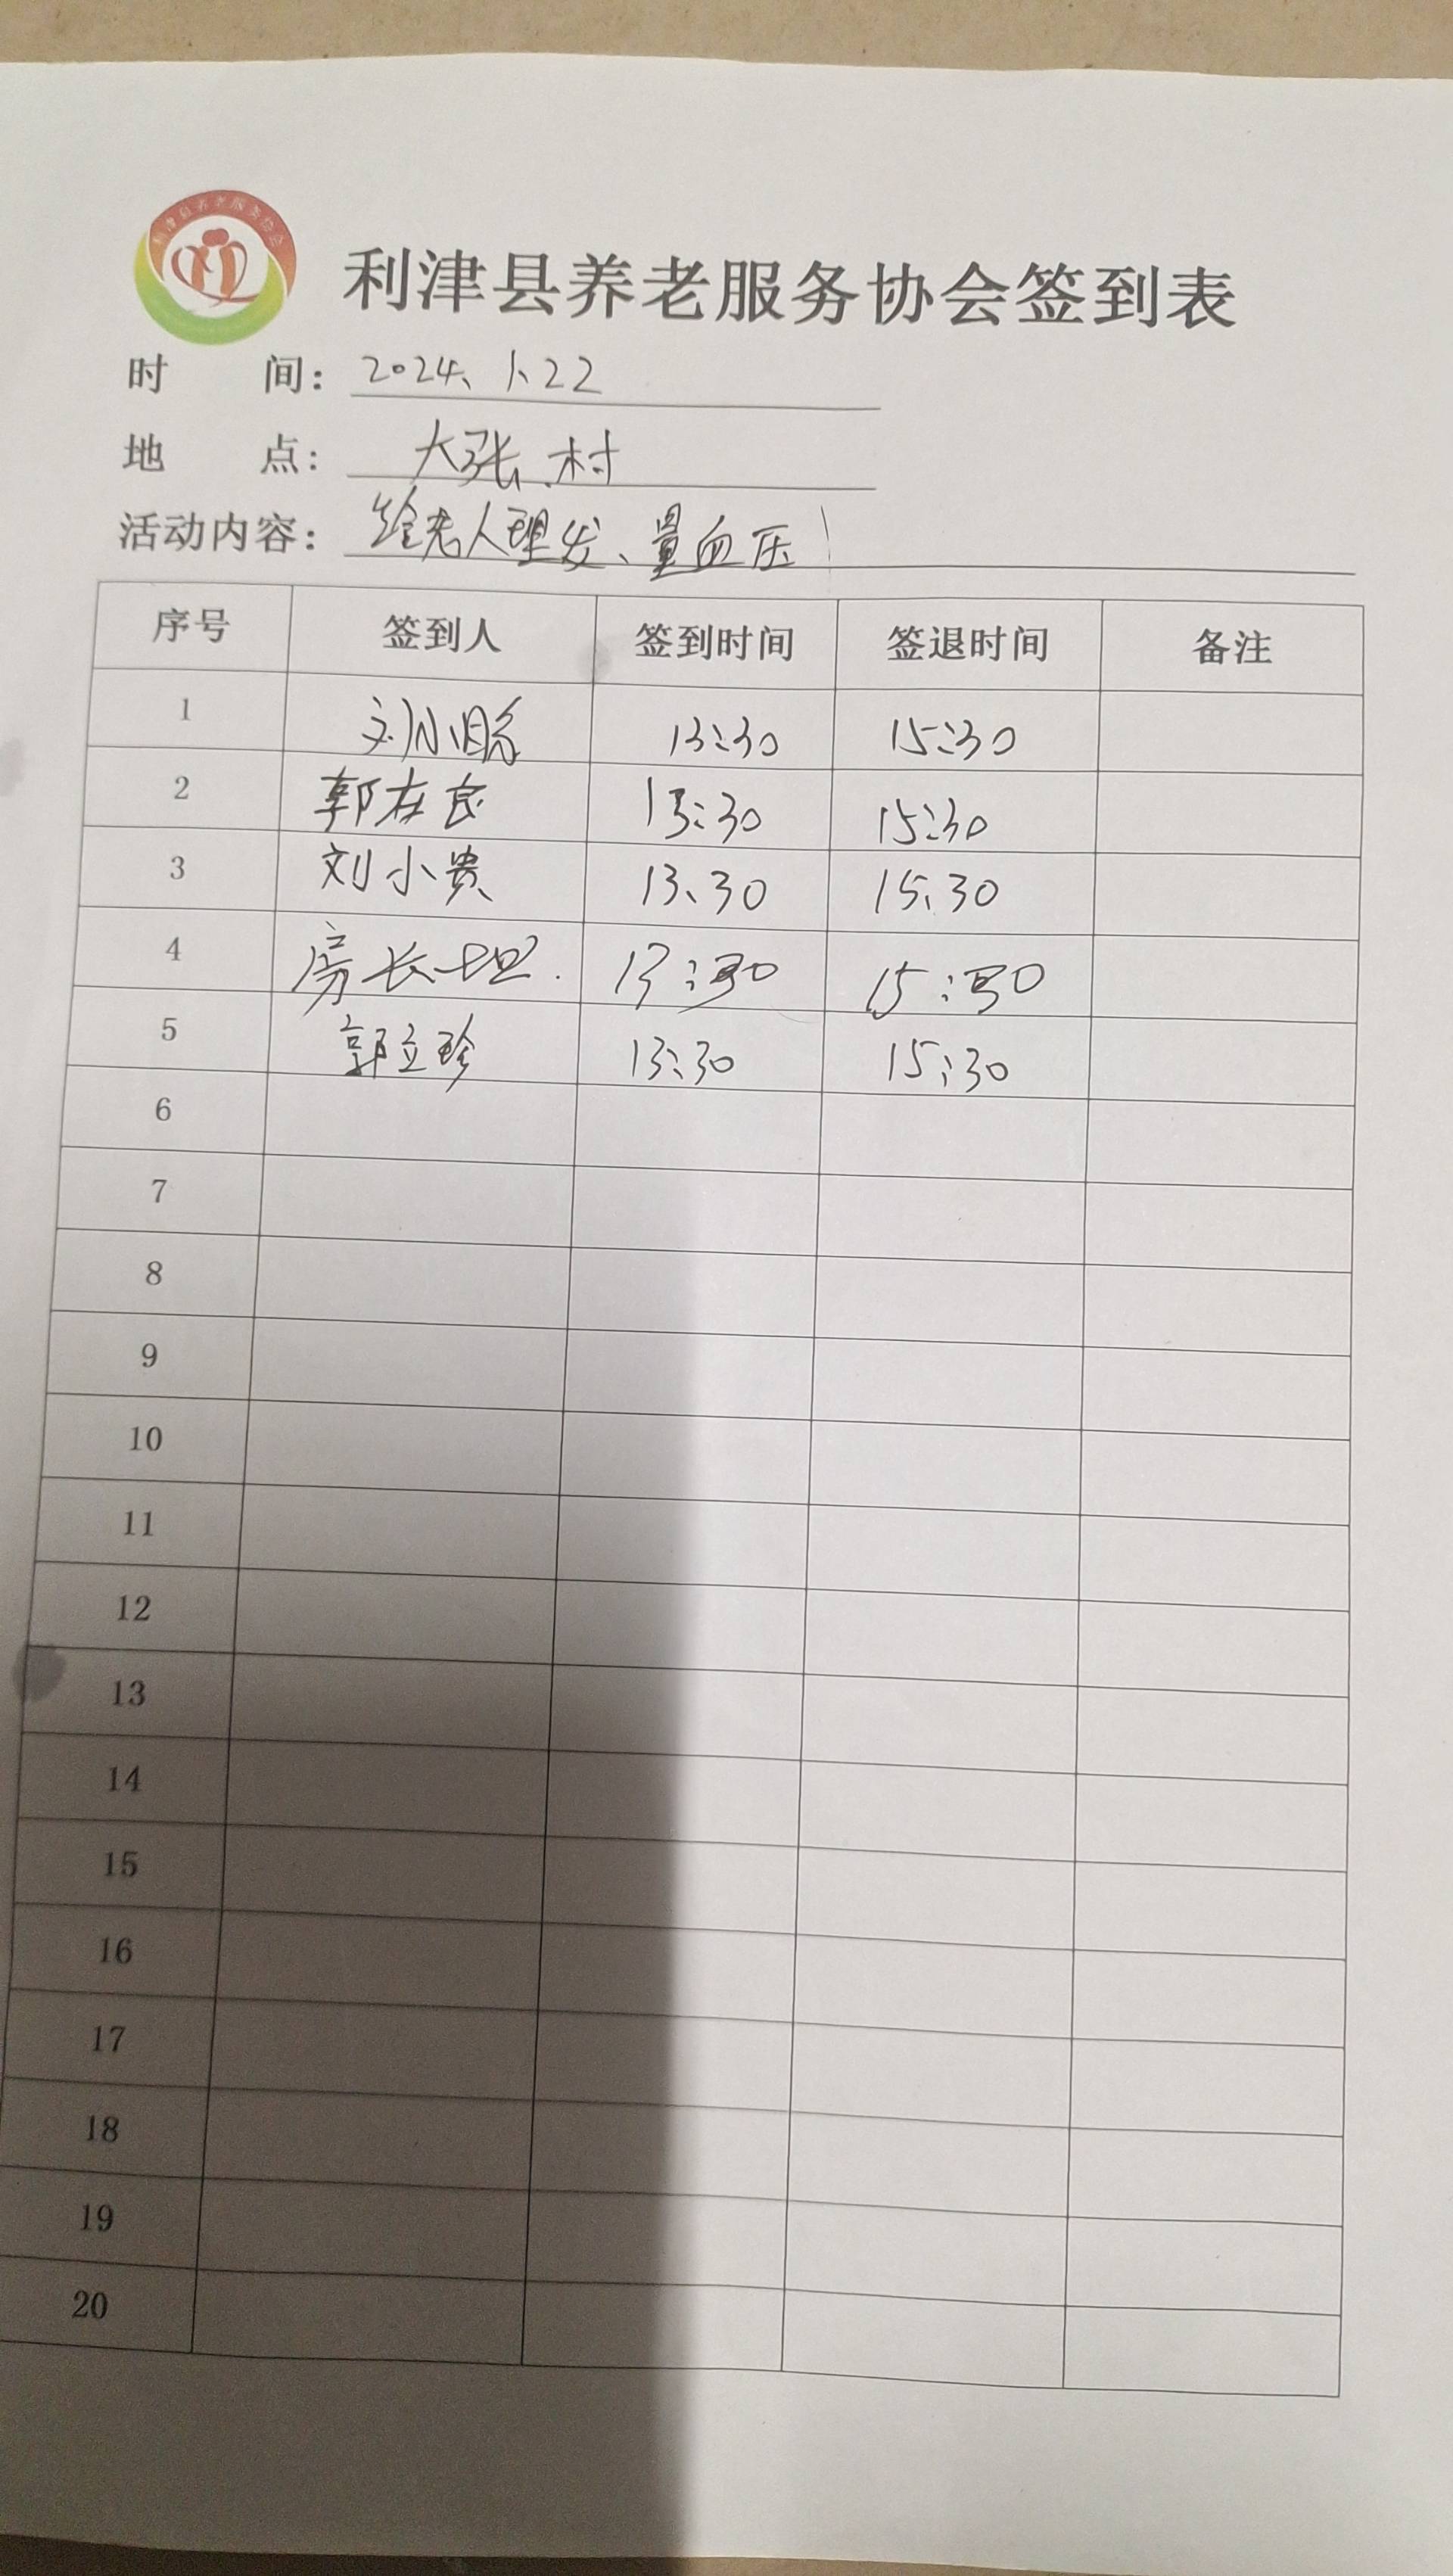 利津县养老服务协会
利津县养老服务协会签到表
时 间: 2024、1、22
地 点: 大张村
活动内容: 给老人理发、量血压
序号 签到人 签到时间 签退时间 备注
1 刘小聪 13:30 15:30
2 郭在良 13:30 15:30
3 刘小贵 13、30 15、30
4 房长坦 13:30 15:30
5 郭立珍 13:30 15:30
6
7
8
9
10
11
12
13
14
15
16
17
18
19
20